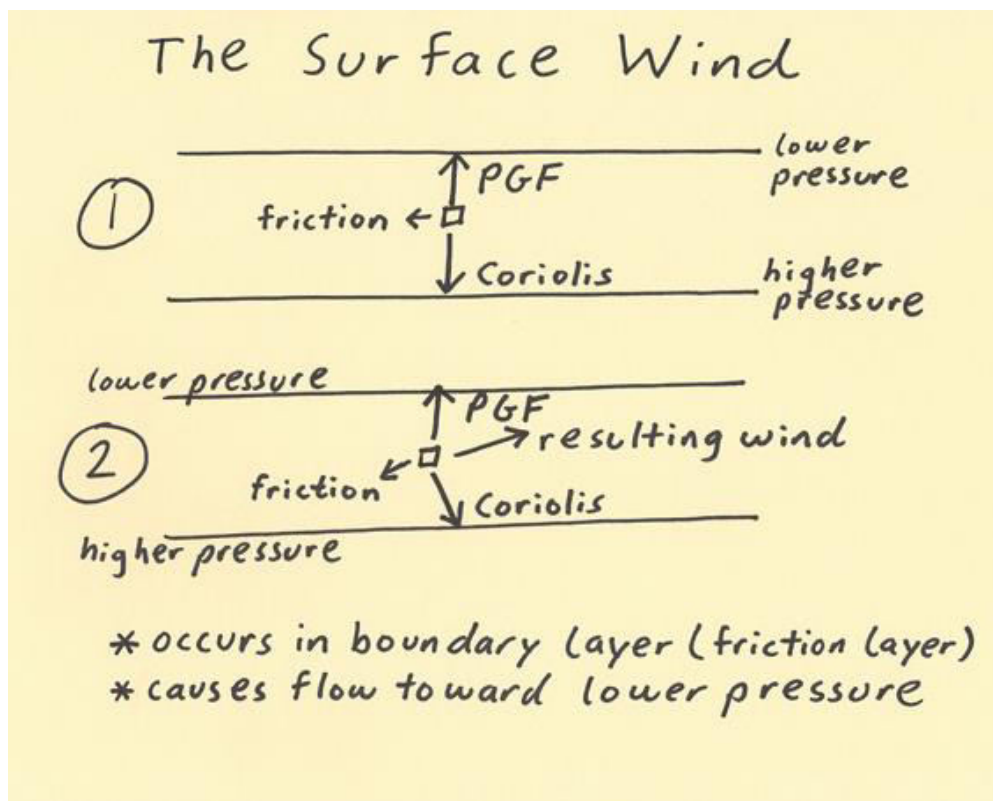 The Surface Wind
lower
pressure
1
PGF
friction
Coriolis
higher
pressure
lower pressure
PGF
2
resulting wind
friction
Coriolis
higher pressure
* occurs in boundary layer (friction layer)
* causes flow toward lower pressure